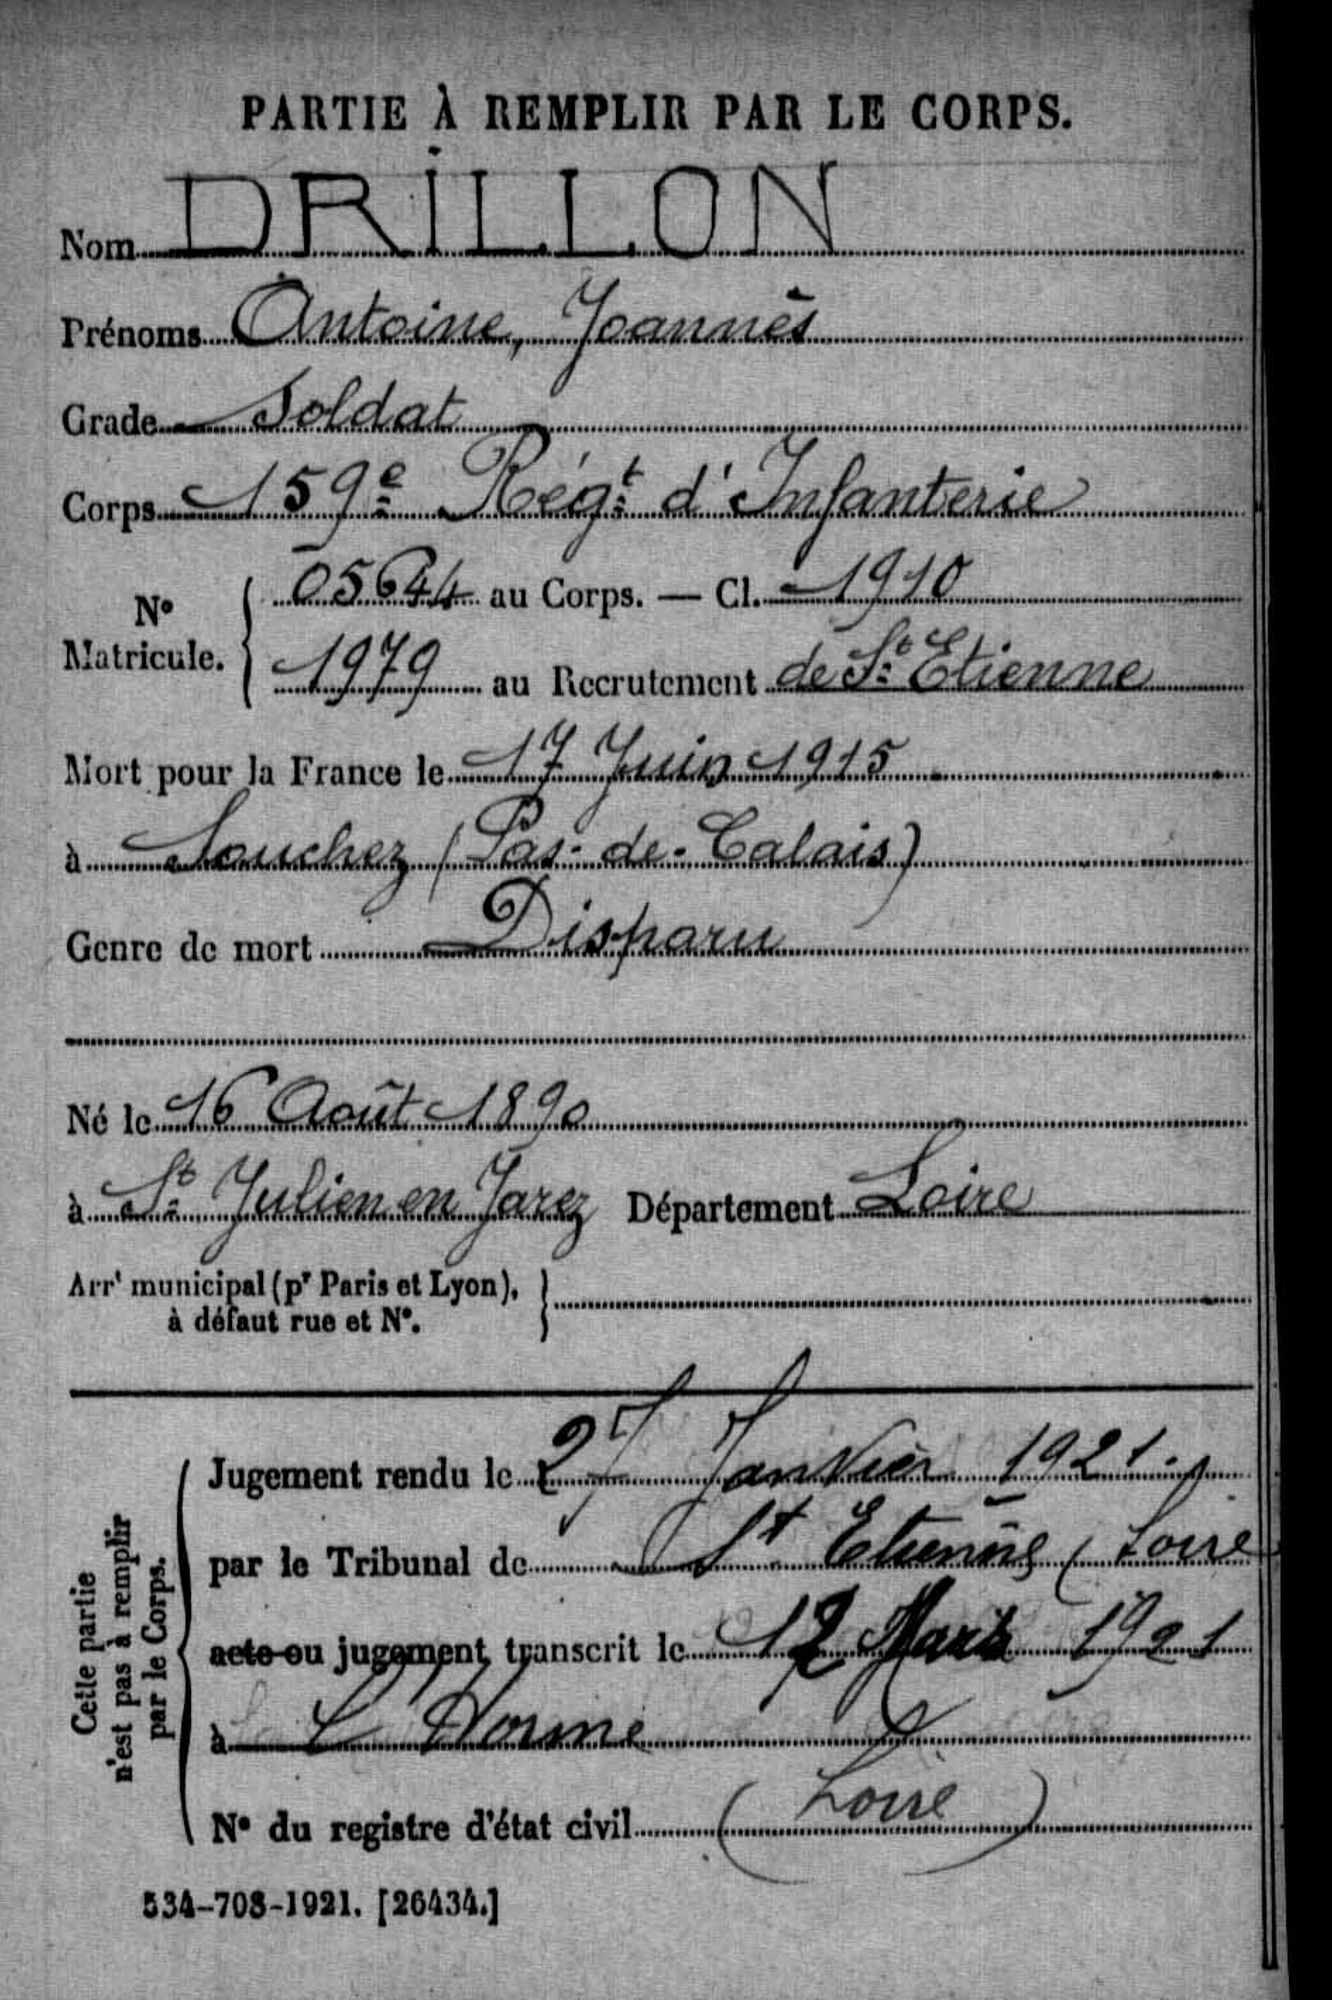 PARTIE À REMPLIR PAR LE CORPS.
Nom DRILLON
Prénoms Antoine, Joannès
Grade Soldat
Corps 159e Régt d'Infanterie
No Matricule. { 05644 au Corps. — Cl. 1910
1979 au Recrutement de St Etienne
Mort pour la France le 17 Juin 1915
à Souchez (Pas-de-Calais)
Genre de mort Disparu
Né le 16 Août 1890
à St Julien en Jarez Département Loire
Arrt municipal (pr Paris et Lyon), }
à défaut rue et No.
Cette partie
n'est pas à remplir
par le Corps.
Jugement rendu le 27 Janvier 1921.
par le Tribunal de St Etienne (Loire
acte ou jugement transcrit le 12 Mars 1921
à L'Horme
No du registre d'état civil (Loire)
534-708-1921. [26434.]